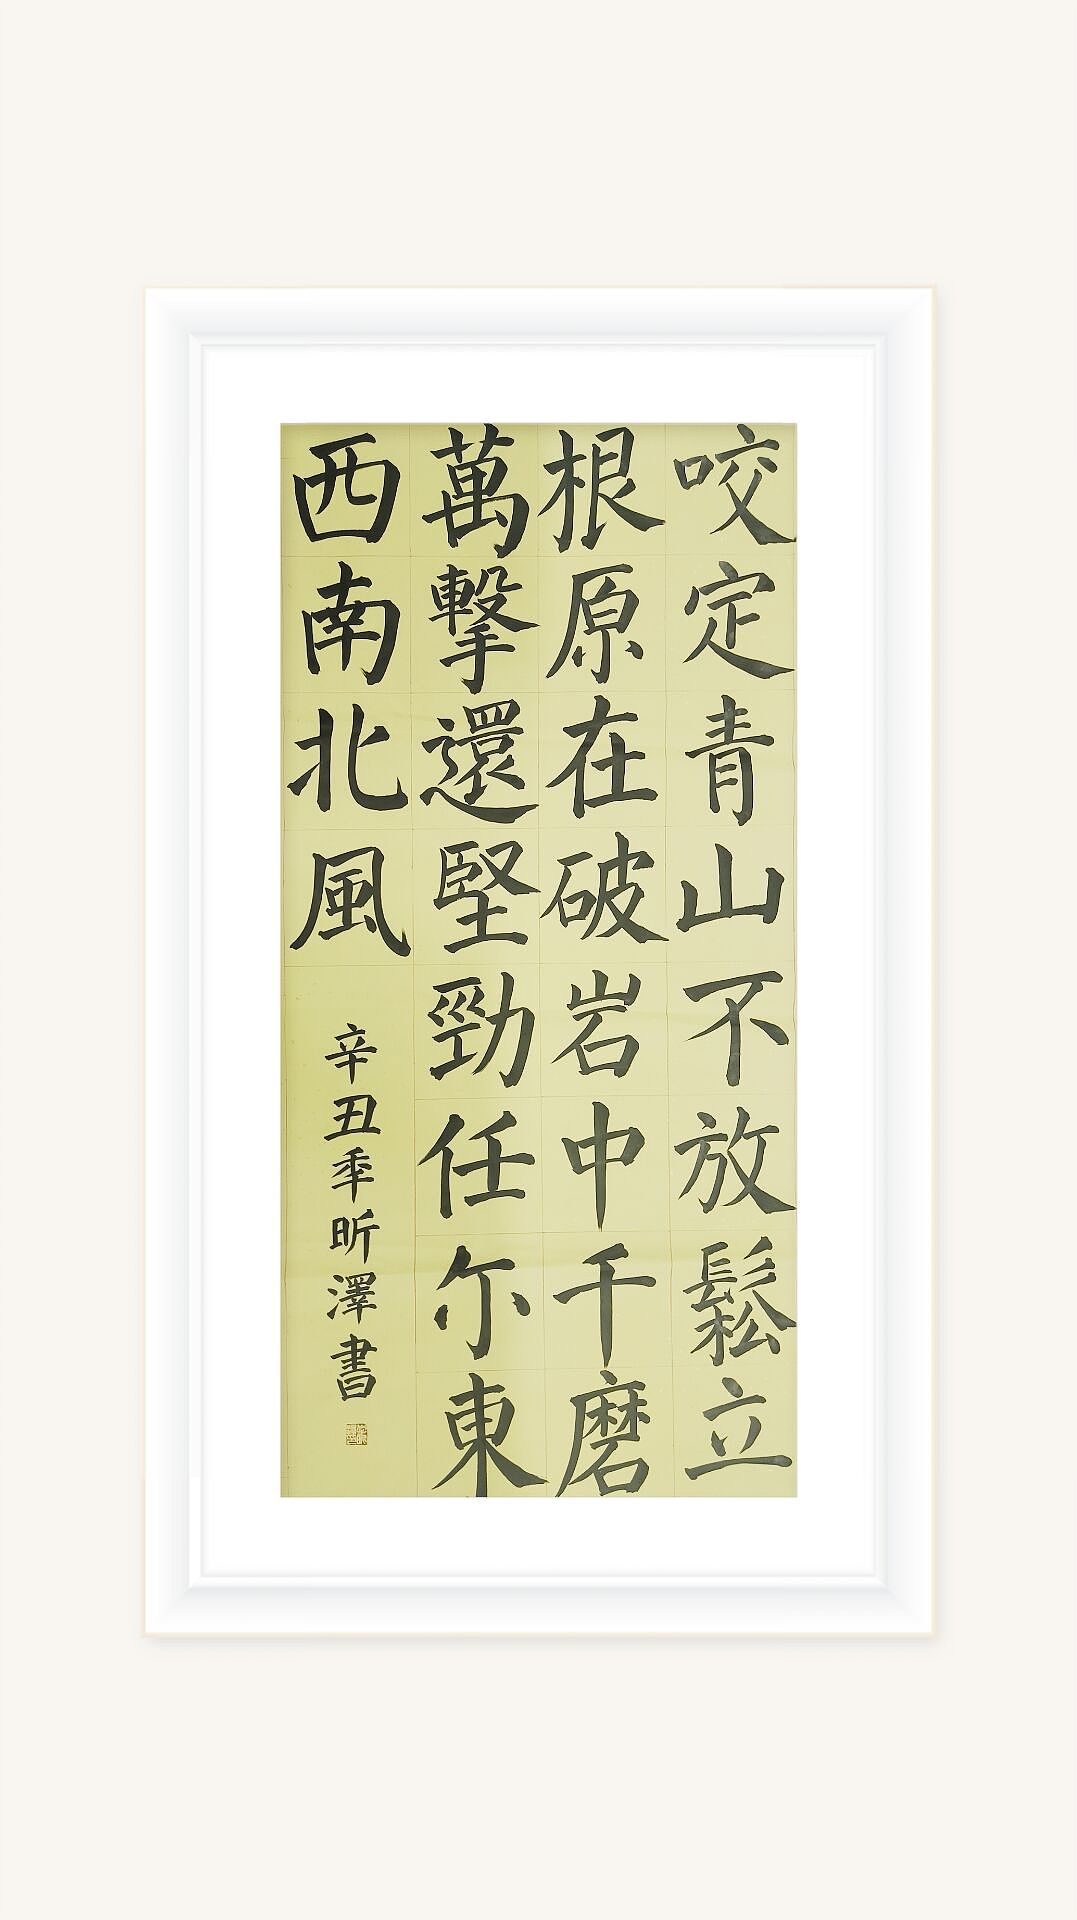 咬定青山不放鬆立
根原在破岩中千磨
萬擊還堅勁任尓東
西南北風
辛丑季昕澤書